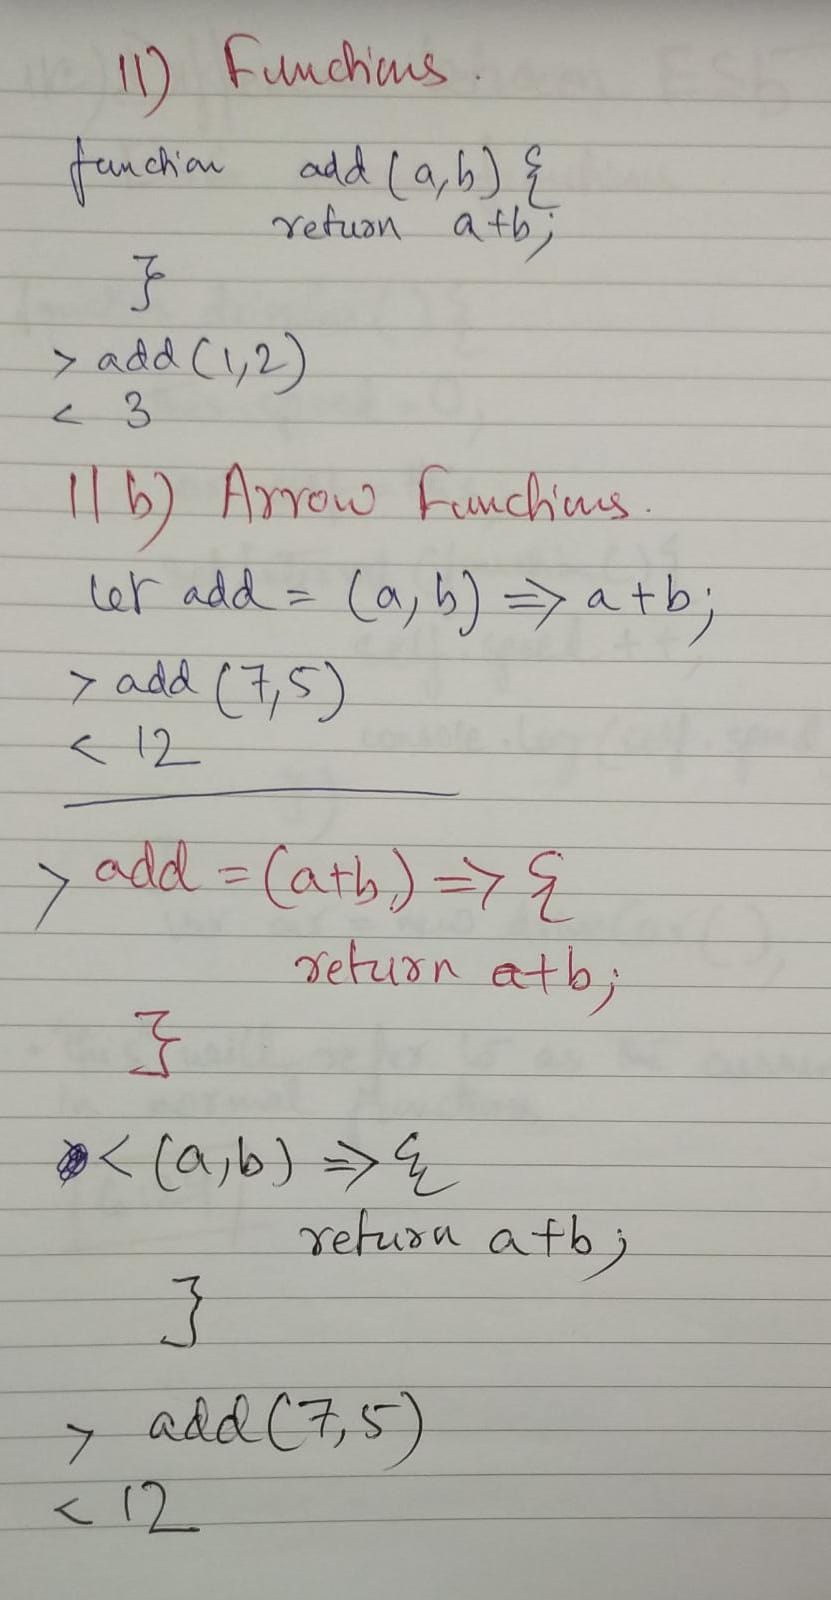 11) Functions.
function add (a,b) {
return a+b;
}
> add (1,2)
< 3
11 b) Arrow Functions.
let add = (a, b) => a+b;
> add (7,5)
< 12
> add = (a+b,) => {
return a+b;
}
< (a,b) => {
return a+b;
}
> add(7,5)
< 12